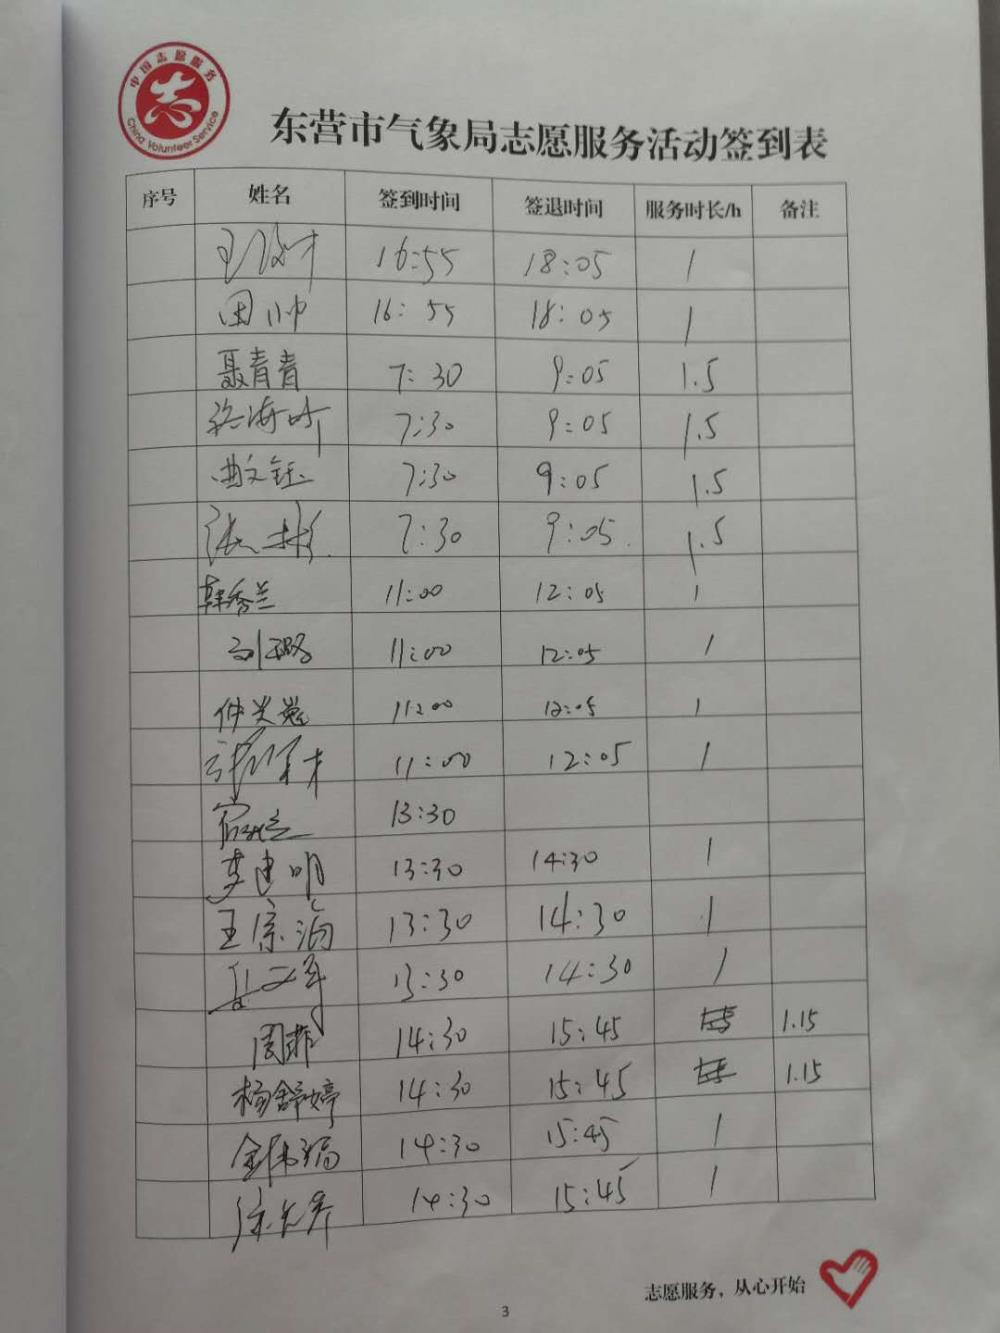 中国志愿服务
China Volunteer Service
东营市气象局志愿服务活动签到表
序号 姓名 签到时间 签退时间 服务时长/h 备注
16:55 18:05 1
田帅 16:55 18:05 1
聂青青 7:30 9:05 1.5
7:30 9:05 1.5
曲文钰 7:30 9:05 1.5
张 7:30 9:05 1.5
韩秀兰 11:00 12:05 1
刘璐 11:00 12:05 1
11:00 12:05 1
11:00 12:05 1
13:30
李建明 13:30 14:30 1
王宗滴 13:30 14:30 1
13:30 14:30 1
周菲 14:30 15:45 1.15
杨舒婷 14:30 15:45 1.15
14:30 15:45 1
14:30 15:45 1
志愿服务，从心开始
3